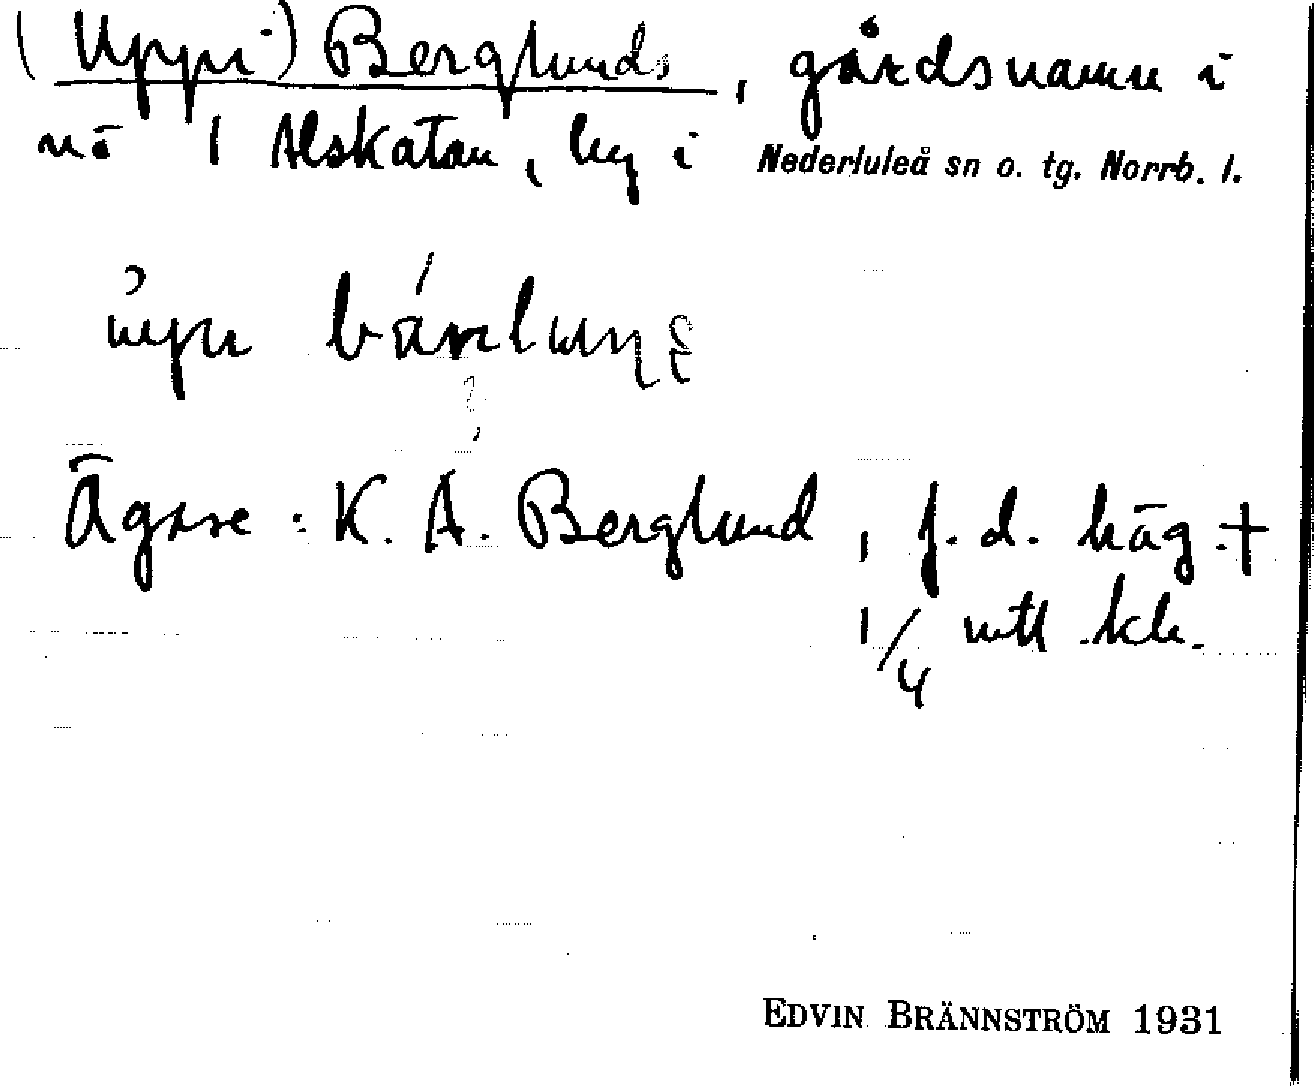 (Uppi) Berglunds, gårdsnamn i
nö 1 Alskatan, by i Nederluleå sn o. tg. Norrb. l.
Ägare: K. A. Berglund, f. d. häg +
1/4 mtl kr.
EDVIN BRÄNNSTRÖM 1931